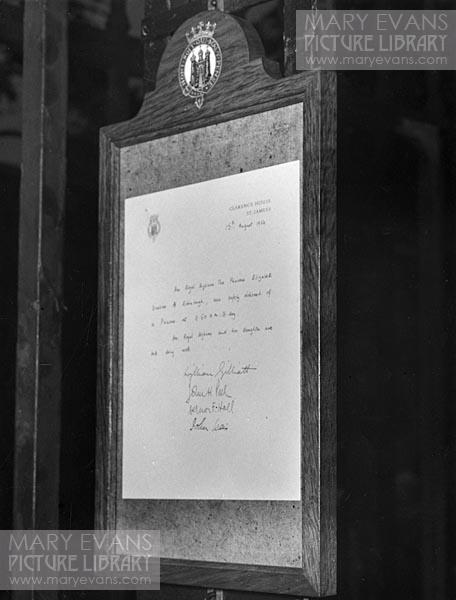 MARY EVANS
PICTURE LIBRARY
www.maryevans.com
CLARENCE HOUSE
ST. JAMES'S
15th August 1950
Her Royal Highness The Princess Elizabeth
Duchess of Edinburgh, was safely delivered of
a Princess at 11.50 a.m. to-day.
Her Royal Highness and her daughter are
both doing well.
William Gilliatt
John H. Peel
Vernon F. Hall
John Weir
MARY EVANS
PICTURE LIBRARY
www.maryevans.com